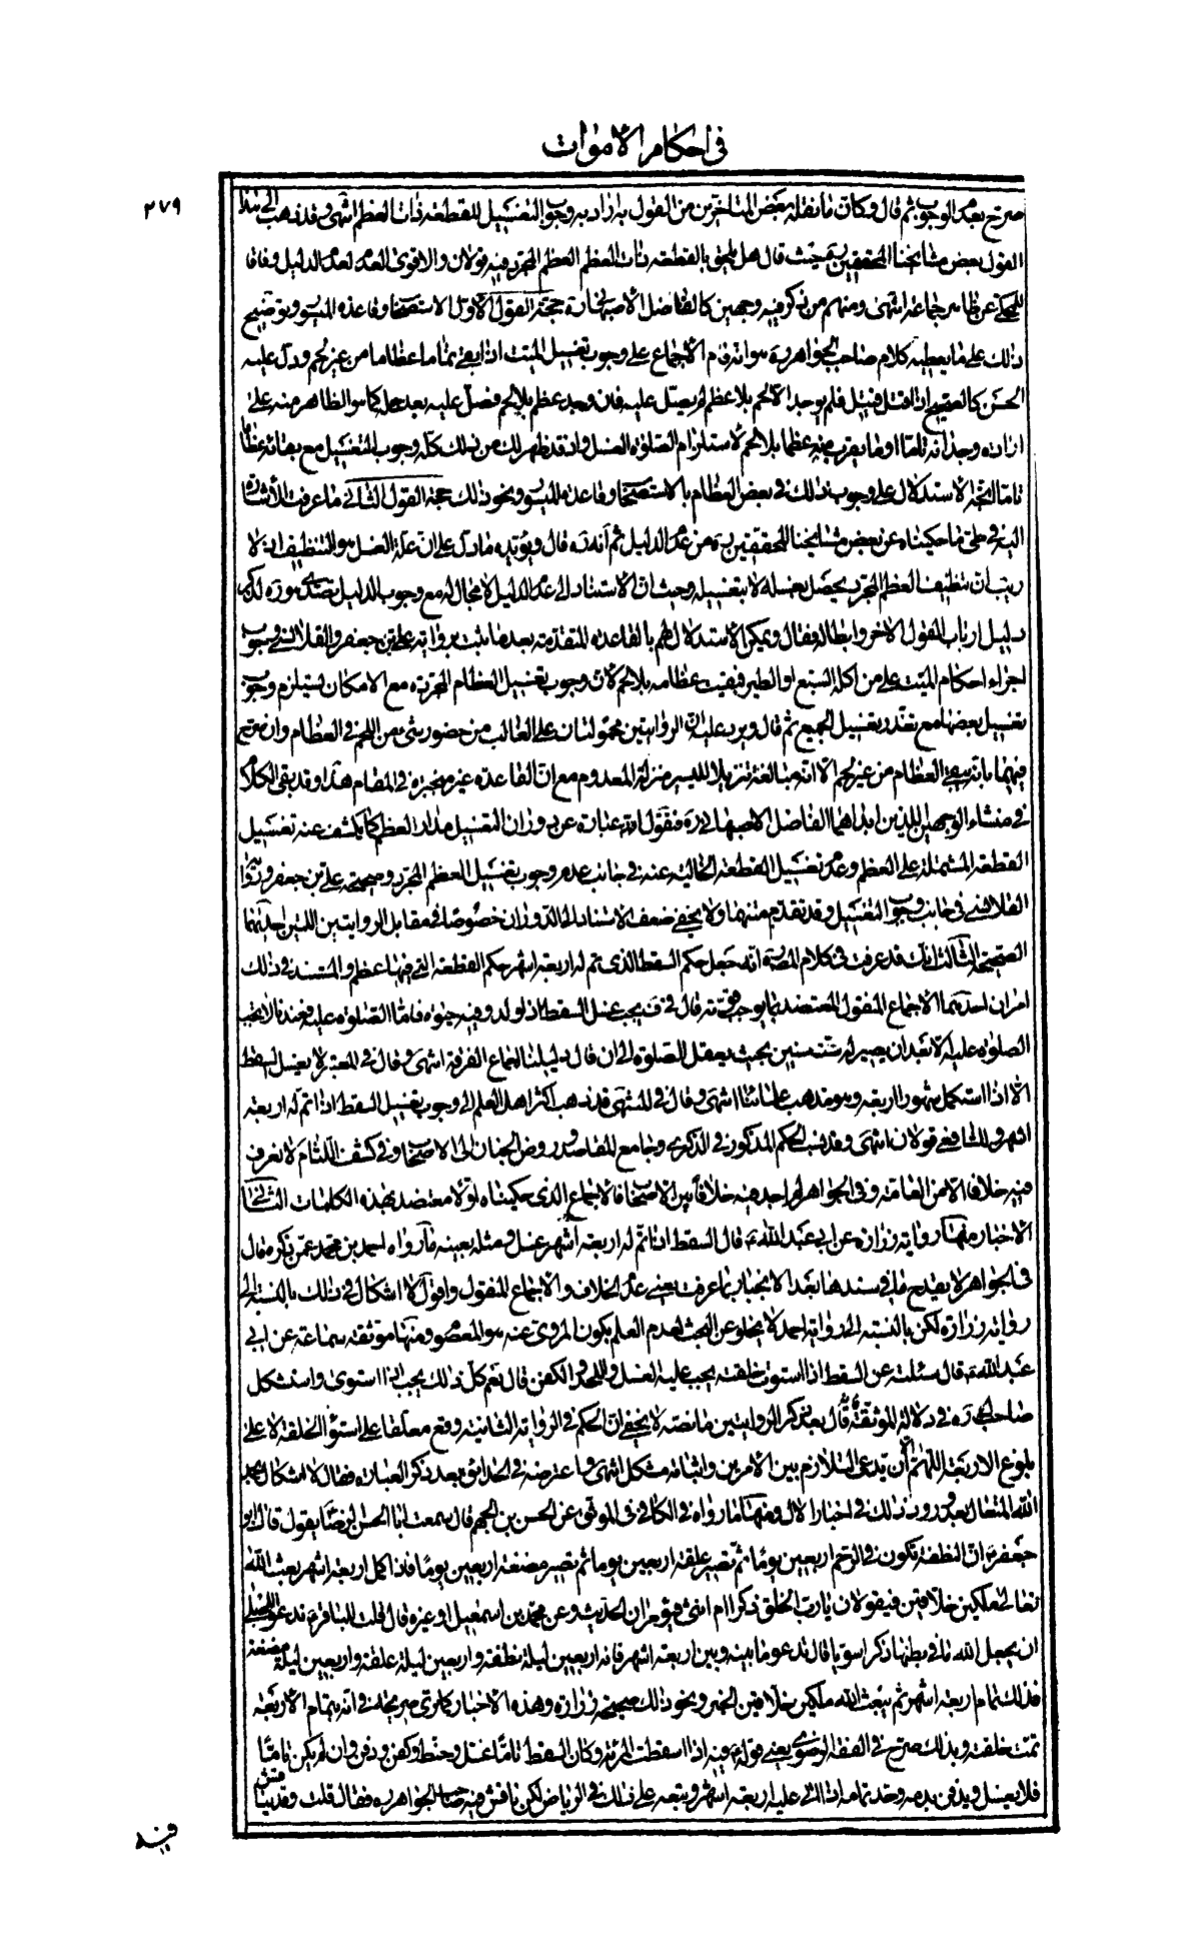 في احكام الاموات
٢٧٩
صرّح بعدم الوجوب ثم قال وكان ما نقله بعض المتاخرين من القول به اراد به وجوب التغسيل للقطعة ذات العظم انتهى وقد ذهب الى هذا
القول بعض مشايخنا المحققين حيث قال هل يلحق بالقطعة ذات العظم العظم المجرد فيه قولان والاقوى العدم لعدم الدليل وفاقا
للمحكي عن ظاهر جماعة انتهى ومنهم من ذكر فيه وجهين كالفاضل الاصبهاني ره حجة القول الاول الاستصحاب وقاعدة الميسور وتوضيح
ذلك على ما يعطيه كلام صاحب الجواهر ره هو انه قام الاجماع على وجوب تغسيل الميت اذا بقي تماما عظاما من غير لحم ودل عليه
الحسن كالصحيح اذا قتل قتيل فلم يوجد الا لحم بلا عظم لم يصل عليه فان وجد عظم بلا لحم فصل عليه بعد حمله كما هو الظاهر منه على
ارادة وجدانه تاما او ما يقرب منه عظما بلا لحم لاستلزام الصلوة الغسل واذ قد ظهر لك من ذلك كله وجوب التغسيل مع بقائه عظاما
تاما اتجه الاستدلال على وجوب ذلك في بعض العظام بالاستصحاب وقاعدة الميسور ونحو ذلك حجة القول الثاني ما عرفت الاشارة
اليه في طي ما حكيناه عن بعض مشايخنا المحققين ره من عدم الدليل ثم انه ره قال ويؤيده ما دل على ان علة الغسل هو التنظيف اذ لا
ريب ان تنظيف العظم المجرد يحصل بغسله لا بتغسيله وحيث ان الاستناد الى عدم الدليل لا مجال له مع وجود الدليل تصدى هو ره لذكر
دليل ارباب القول الاخر وابطاله فقال ويمكن الاستدلال لهم بالقاعدة المتقدمة بعد ما ثبت برواية علي بن جعفر والقلانسي وجوب
اجراء احكام الميت على من اكله السبع او الطير فبقيت عظامه بلا لحم لان وجوب تغسيل العظام المجردة مع الامكان يستلزم وجوب
تغسيل بعضها مع تعذر تغسيل الجميع ثم قال ويرد عليه ان الروايتين محمولتان على الغالب من حضور شيء من اللحم في العظام وان صرح
فيهما بانه بقي العظام من غير لحم الا انه مبالغة تنزيلا لليسير منزلة المعدوم مع ان القاعدة غير منجبرة في المقام هذا وقد بقى الكلام
في منشاء الوجهين اللذين ابداهما الفاضل الاصبهاني ره فنقول انه عبارة عن دوران التغسيل مدار العظم كما يكشف عنه تغسيل
القطعة المشتملة على العظم وعدم تغسيل القطعة الخالية عنه في جانب عدم وجوب تغسيل العظم المجرد وصحيحة علي بن جعفر ورواية
القلانسي في جانب وجوب التغسيل وقد تقدم متنها ولا يخفى ضعف الاستناد الى الدوران خصوصا في مقابل الروايتين اللتين احديهما
الصحيحة الثالث انك قد عرفت في كلام المص ره انه جعل حكم السقط الذي تم له اربعة اشهر حكم القطعة التي فيها عظم والمستند في ذلك
امران احدهما الاجماع المنقول المعتضد بما يوجب قوته قال في ف يجب غسل السقط اذا ولد وفيه حيوة فاما الصلوة عليه فعندنا لا تجب
الصلوة عليه الا بعد ان يصير له ست سنين بحيث يعقل الصلوة الى ان قال دليلنا اجماع الفرقة انتهى وقال في المعتبر لا يغسل السقط
الا اذا استكمل شهورا اربعة وهو مذهب علمائنا انتهى وقال في المنتهى قد ذهب اكثر اهل العلم الى وجوب تغسيل السقط اذا تم له اربعة
اشهر وللشافعي قولان انتهى وقد نسب الحكم المذكور في الذكرى وجامع المقاصد وروض الجنان الى الاصحاب وفي كشف اللثام لا نعرف
فيه خلافا الا من العامة وفي الجواهر لم اجد فيه خلافا بين الاصحاب فالاجماع الذي حكيناه اولا معتضد بهذه الكلمات الثاني
الاخبار منها رواية زرارة عن ابي عبد الله ع قال السقط اذا تم له اربعة اشهر غسل ومثله بعينه ما رواه احمد بن محمد عمن ذكره قال
في الجواهر لا يقدح ما في سندها بعد الانجبار بما عرفت يعني عدم الخلاف والاجماع المنقول واقول لا اشكال في ذلك بالنسبة الى
رواية زرارة لكن بالنسبة الى رواية احمد لا يخلو عن البحث لعدم العلم بكون المروي عنه هو المعصوم ومنها موثقة سماعة عن ابي
عبد الله ع قال سئلته عن السقط اذا استوت خلقته يجب عليه الغسل واللحد والكفن قال نعم كل ذلك يجب اذا استوى واستشكل
صاحب ك ره في دلالة الموثقة قال بعد ذكر الروايتين ما نصه لا يخفى ان الحكم في الرواية الثانية وقع معلقا على استواء الخلقة لا على
بلوغ الاربعة اللهم الا ان يدعى التلازم بين الامرين واثباته مشكل انتهى واعترضه في الحدائق بعد ذكر العبارة فقال لا اشكال بحمد
الله المتعال بعد ورود ذلك في اخبار الال ومنها ما رواه في الكافي في الموثق عن الحسن بن الجهم قال سمعت ابا الحسن الرضا يقول قال ابو
جعفر ع ان النطفة تكون في الرحم اربعين يوما ثم تصير علقة اربعين يوما ثم تصير مضغة اربعين يوما فاذا كمل اربعة اشهر بعث الله
تعالى ملكين خلاقين فيقولان يا رب ما نخلق ذكرا ام انثى فيؤمران الحديث وعن محمد بن اسمعيل او غيره قال قلت للباقر ع ندعو للحبلى
ان يجعل الله ما في بطنها ذكرا سويا قال تدعو ما بينه وبين اربعة اشهر فانه اربعين ليلة نطفة واربعين ليلة علقة واربعين ليلة مضغة
فذلك تمام اربعة اشهر ثم يبعث الله ملكين خلاقين الخبر ونحو ذلك صحيحة زرارة وهذه الاخبار كما ترى صريحة في انه بتمام الاربعة
تمت خلقته وبذلك صرح في الفقه الرضوي يعني قوله ع فيه اذا اسقطت المرئة وكان السقط تاما غسل وحنط وكفن ودفن وان لم يكن تاما
فلا يغسل ويدفن بدمه وحد تمامه اذا اتى عليه اربعة اشهر وتبعه على ذلك في الرياض لكن ناقش فيه صاحب الجواهر ره فقال قلت وقد يناقش
فيه